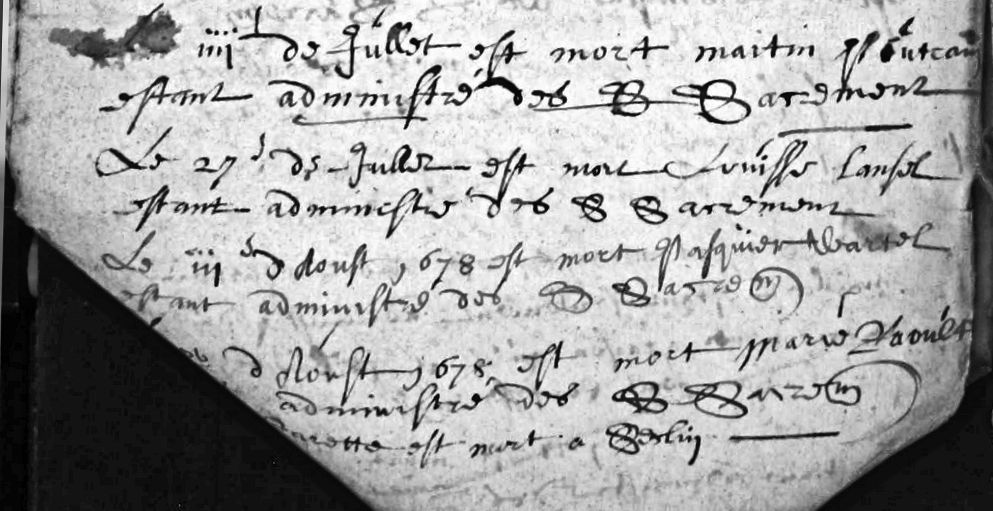 iiii de Jullet est mort maitin
estant administré des S Sacrement
Le 27e de Jullet est mort Louisse Lansel
estant administré des S Sacrement
Le iii d Aoust 1678 est mort Pasquier Wartel
estant administré des S Sacrem
d Aoust 1678 est mort Marie Raoult
administré des S Sacrem
est mort a Seclin